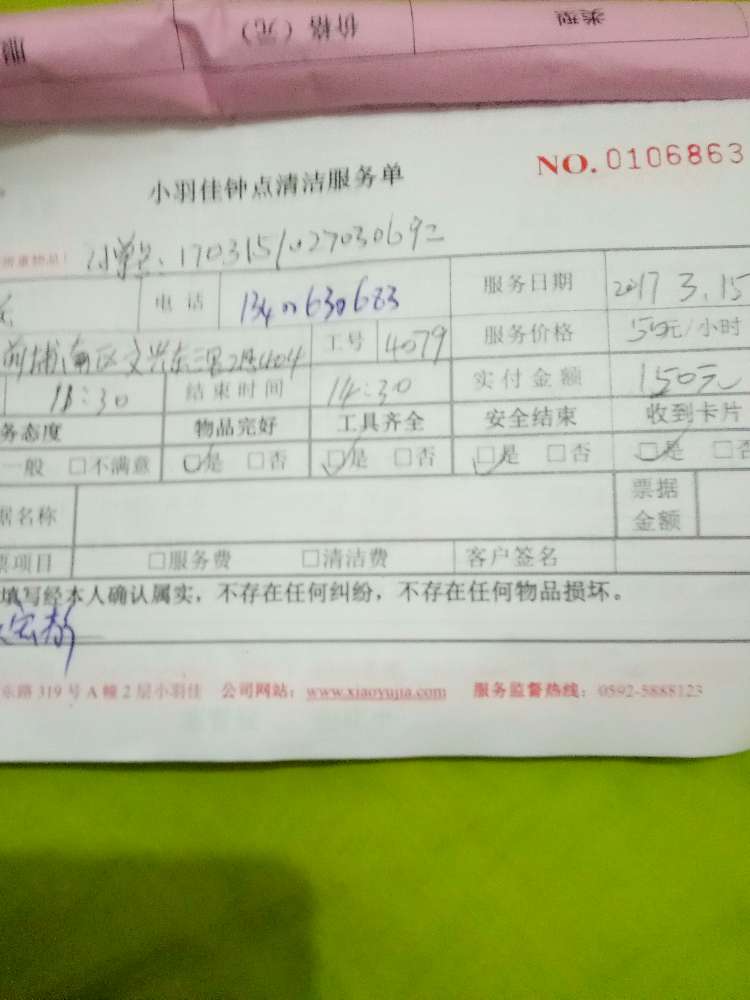 价格（元） 类型
NO. 0106863
小羽佳钟点清洁服务单
电话 服务日期 2017 3.15
工号 4079 服务价格 50元/小时
11:30 结束时间 14:30 实付金额 150元
务态度 物品完好 工具齐全 安全结束 收到卡片
一般 □不满意 □是 □否 □是 □否 □是 □否 □是 □否
据名称 票据金额
票项目 □服务费 □清洁费 客户签名
填写经本人确认属实，不存在任何纠纷，不存在任何物品损坏。
东路319号A幢2层小羽佳 公司网站：www.xiaoyujia.com 服务监督热线：0592-5888123